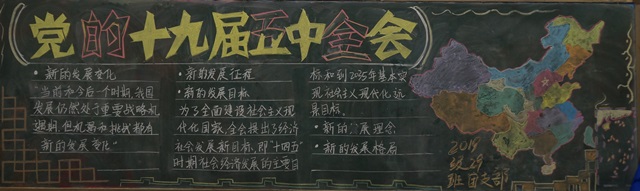 党的十九届五中全会
·新的发展变化
"当前和今后一个时期,我国
发展仍然处于重要战略机
遇期,但机遇和挑战都有
新的发展变化"
·新的发展征程
·新的发展目标
为了全面建设社会主义现
代化国家,全会提出了经济
社会发展新目标,即"十四五"
时期社会经济发展的主要目
标和到2035年基本实
现社会主义现代化远
景目标.
·新的发展理念
·新的发展格局
2019
级29
班团支部